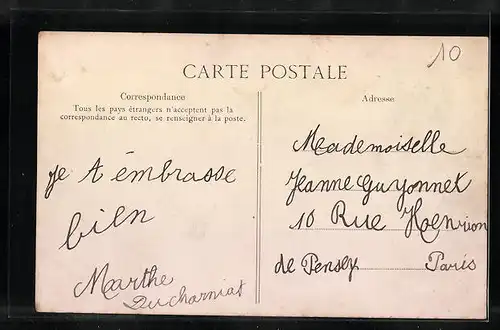 10
CARTE POSTALE
Correspondance
Tous les pays étrangers n'acceptent pas la
correspondance au recto, se renseigner à la poste.
je t émbrasse
bien
Marthe
Ducharniat
Adresse
Mademoiselle
Jeanne Guyonnet
10 Rue Henrion
de Pensey Paris